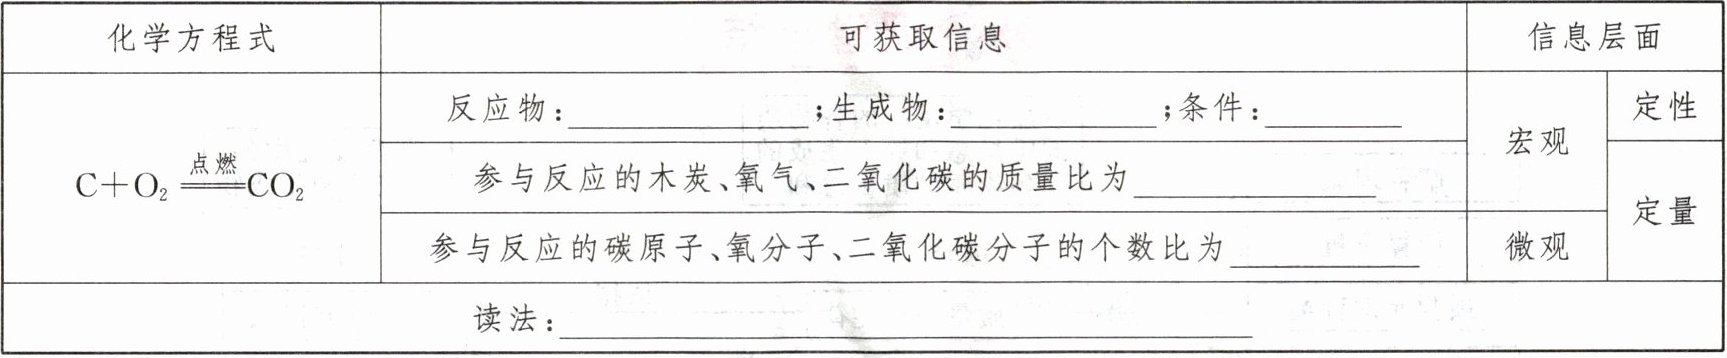 化学方程式 可获取信息 信息层面
反应物:____;生成物:____;条件:____ 宏观 定性
C+O₂ 点燃 ═══ CO₂
参与反应的木炭、氧气、二氧化碳的质量比为____ 定量
参与反应的碳原子、氧分子、二氧化碳分子的个数比为____ 微观
读法:____